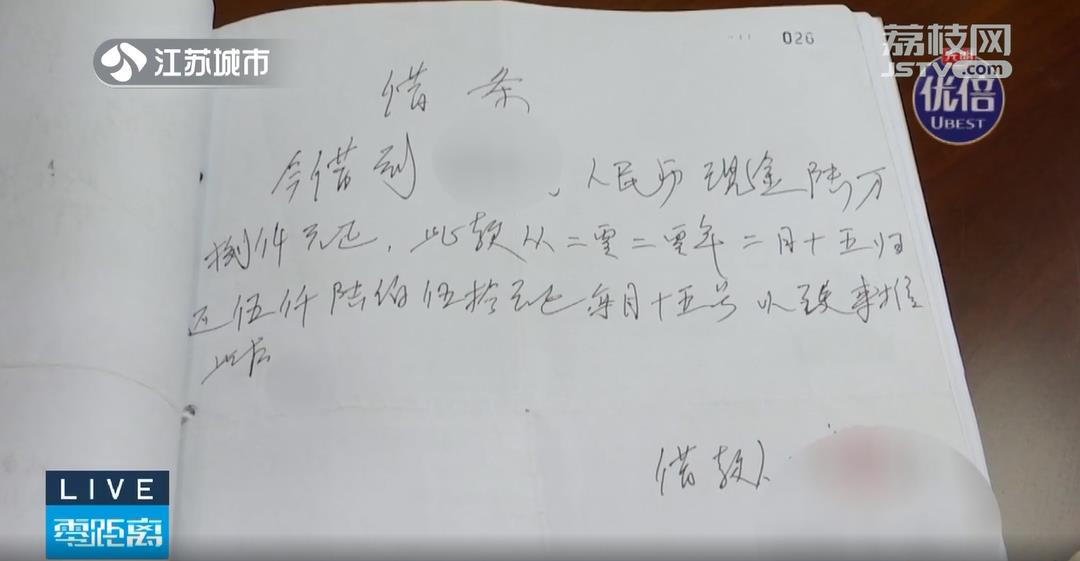 026
江苏城市
荔枝网
JSTV.com
光明
优倍
UBEST
借 条
今借到 、人民币现金陆万
捌仟元正,此款从二零二零年二月十五归
还伍仟陆佰伍拾元正每月十五号以
此后
借款人
LIVE
零距离